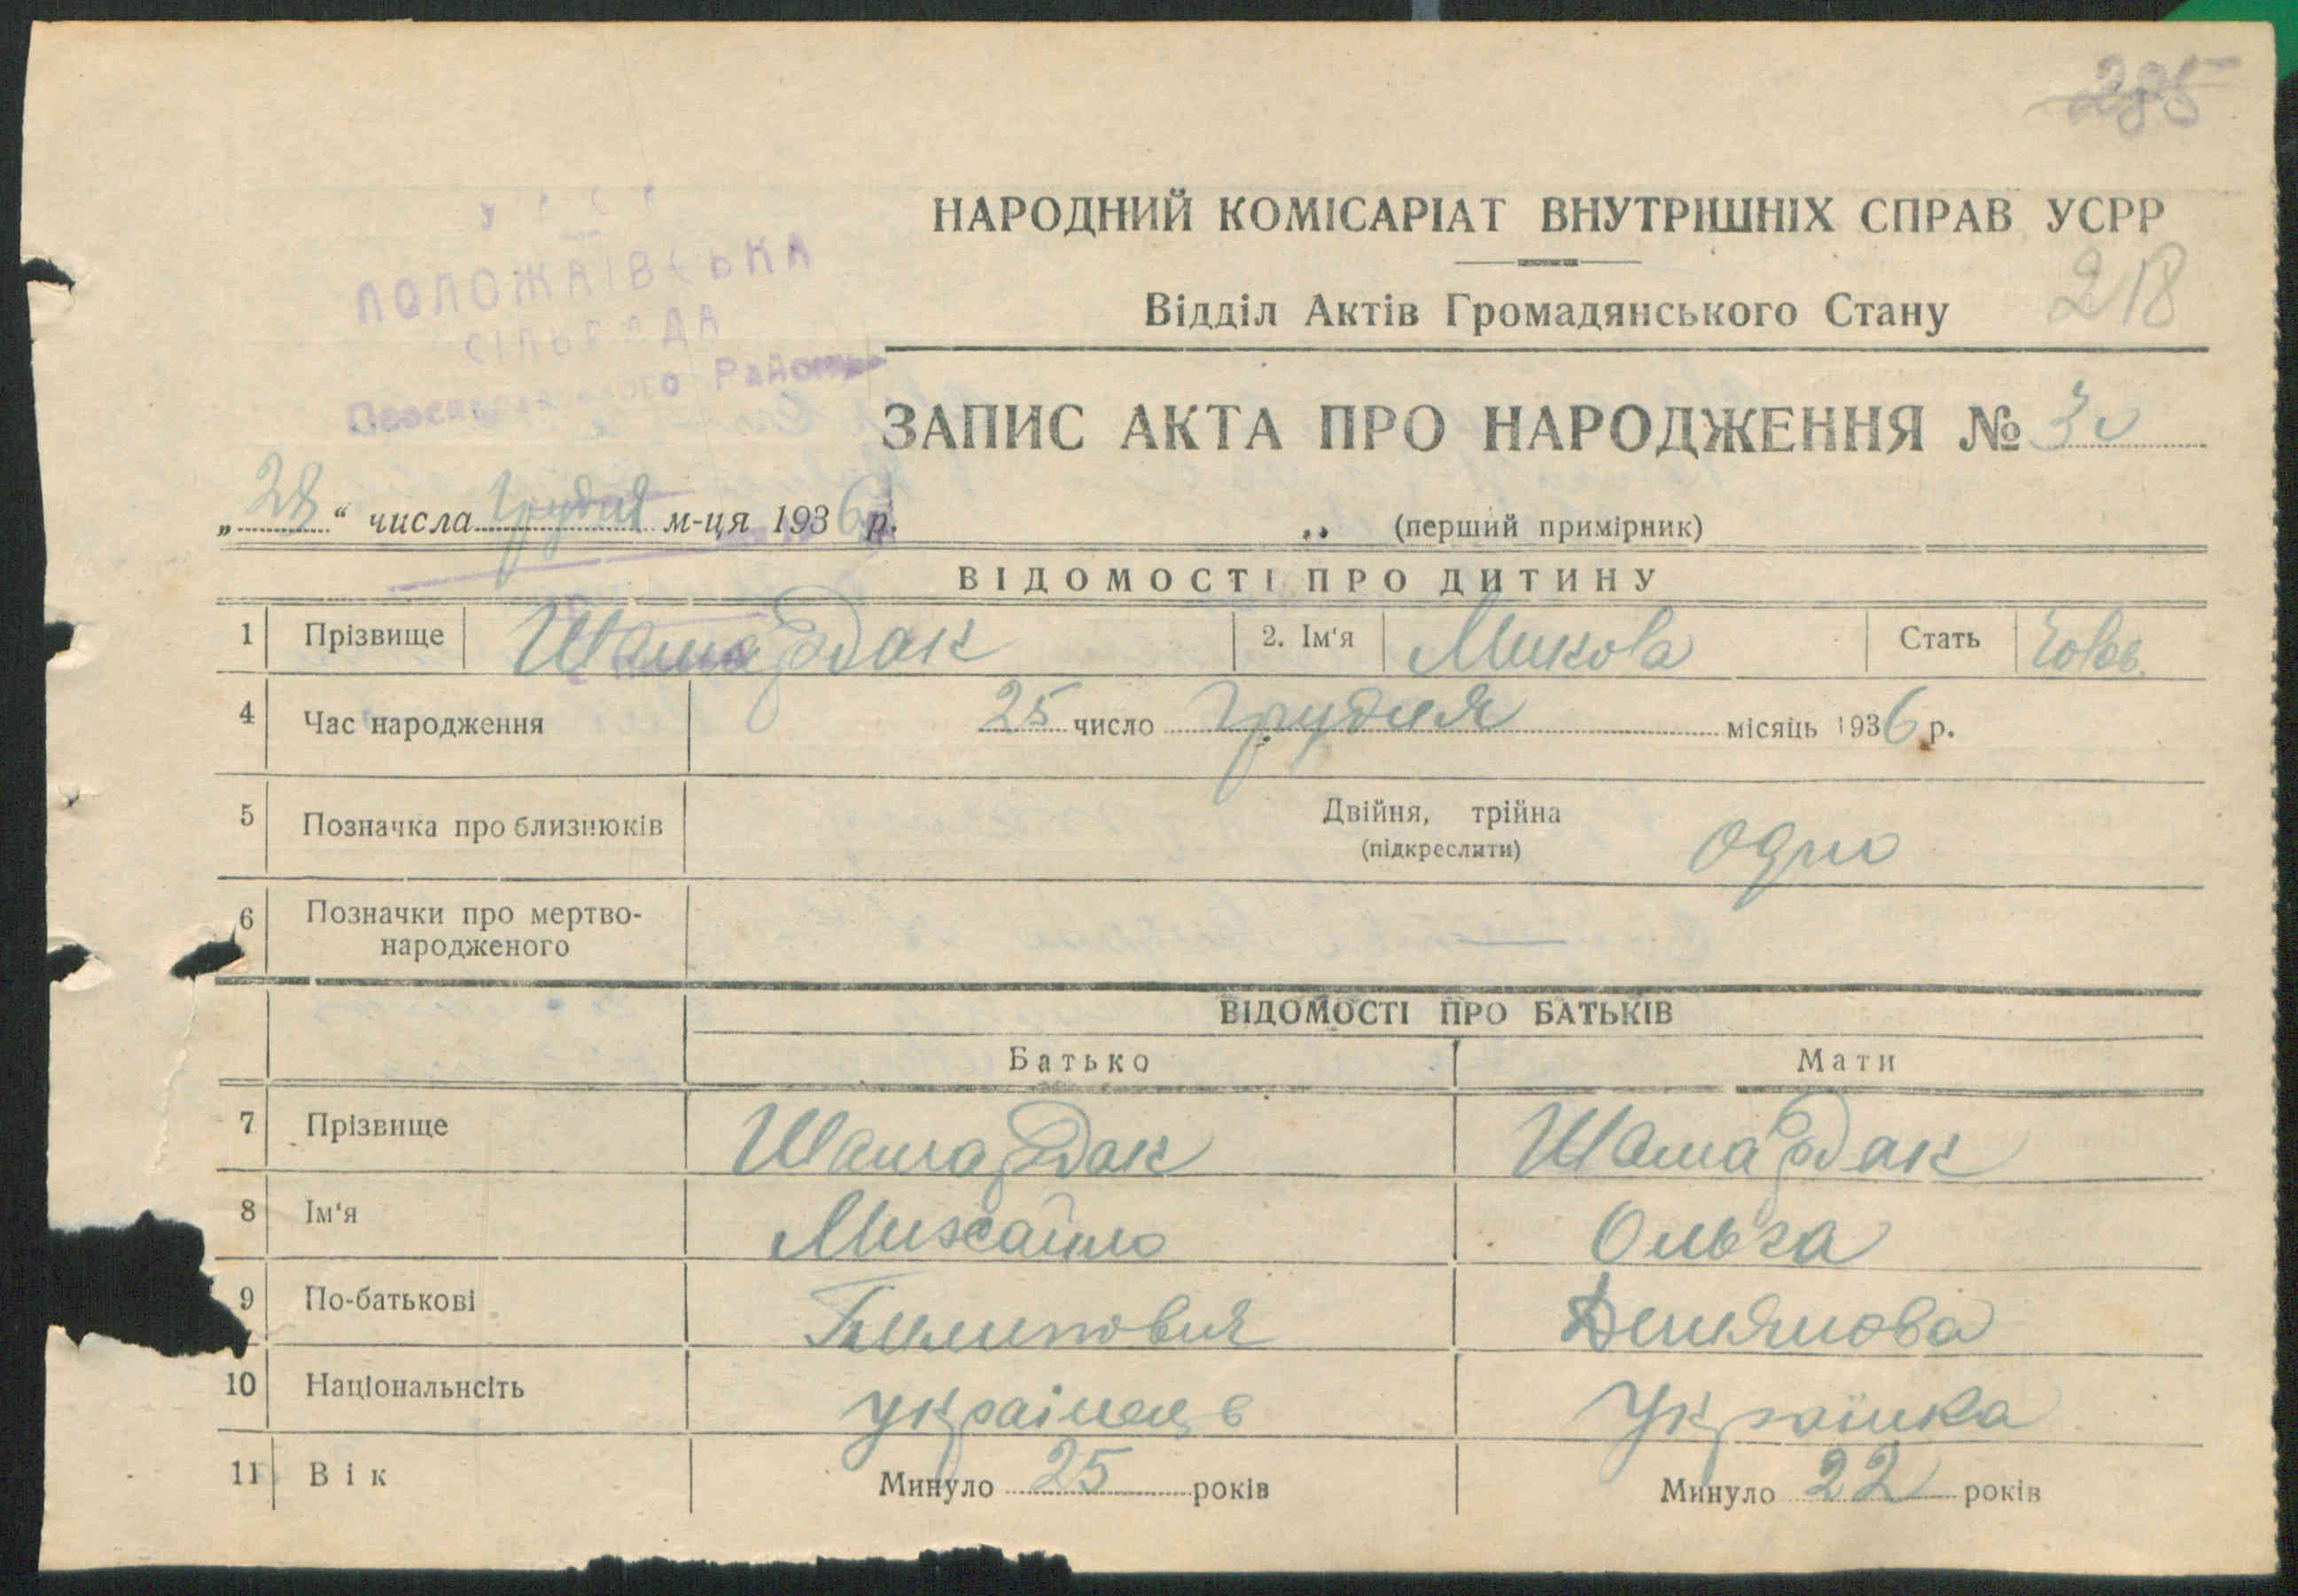 285
НАРОДНИЙ КОМІСАРІАТ ВНУТРІШНІХ СПРАВ УСРР
Відділ Актів Громадянського Стану 218
ПОЛОЖАІВСЬКА
СІЛЬРАДА
Району
ЗАПИС АКТА ПРО НАРОДЖЕННЯ № 30
„28“ числа грудня м-ця 1936 р.
(перший примірник)
ВІДОМОСТІ ПРО ДИТИНУ
1 Прізвище Шамардак 2. Ім'я Микола Стать Чолов.
4 Час народження 25 число грудня місяць 1936 р.
5 Позначка про близнюків Двійня, трійна
(підкреслити) одно
6 Позначки про мертво-
народженого —
ВІДОМОСТІ ПРО БАТЬКІВ
Батько Мати
7 Прізвище Шамардак Шамардак
8 Ім'я Михайло Ольга
9 По-батькові Демянова
10 Національнсіть українець Українка
11 Вік Минуло 25 років Минуло 22 років